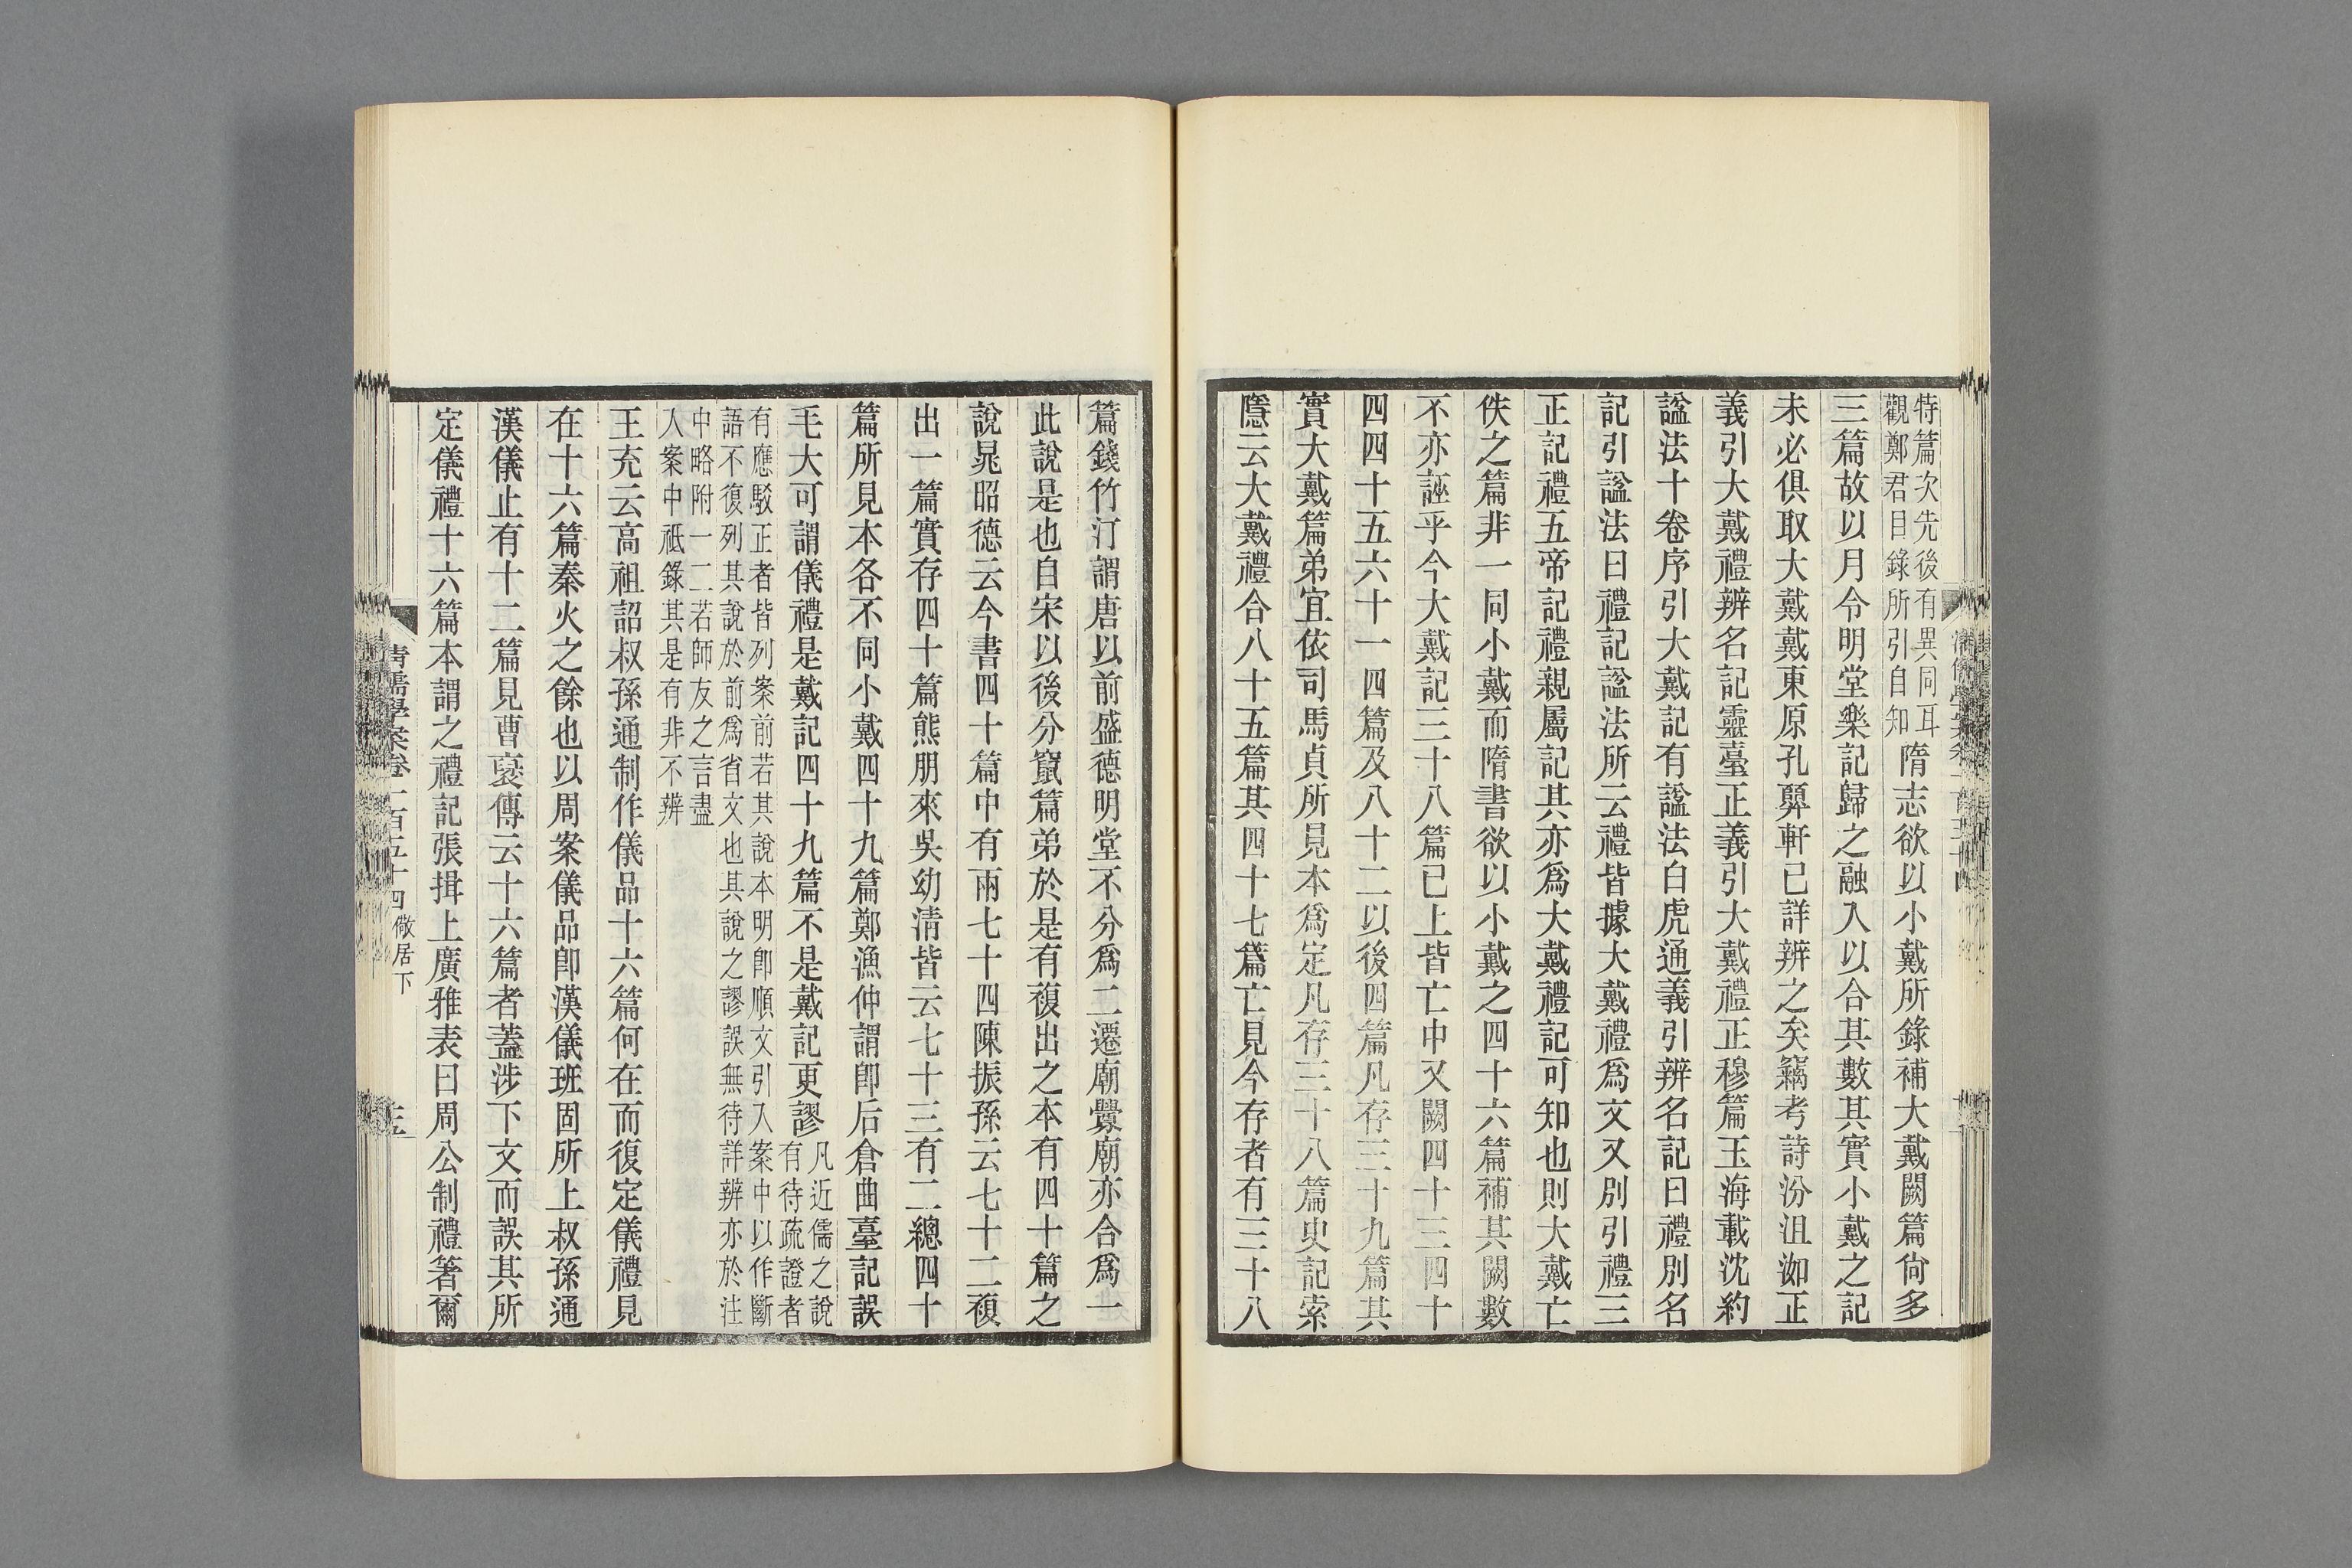 特篇次先後有異同耳
觀鄭君目錄所引自知
隋志欲以小戴所錄補大戴闕篇尙多
三篇故以月令明堂樂記歸之融入以合其數其實小戴之記
未必俱取大戴戴東原孔㢲軒已詳辨之矣竊考詩汾沮洳正
義引大戴禮辨名記靈臺正義引大戴禮正穆篇玉海載沈約
諡法十卷序引大戴記有諡法白虎通義引辨名記曰禮別名
記引諡法曰禮記諡法所云禮皆據大戴禮爲文又別引禮三
正記禮五帝記禮親屬記其亦爲大戴禮記可知也則大戴亡
佚之篇非一同小戴而隋書欲以小戴之四十六篇補其闕數
不亦誣乎今大戴記三十八篇已上皆亡中又闕四十三四十
四四十五六十一四篇及八十二以後四篇凡存三十九篇其
實大戴篇弟宜依司馬貞所見本爲定凡存三十八篇史記索
隱云大戴禮合八十五篇其四十七篇亡見今存者有三十八
篇錢竹汀謂唐以前盛德明堂不分爲二遷廟釁廟亦合爲一
此說是也自宋以後分竄篇弟於是有複出之本有四十篇之
說晁昭德云今書四十篇中有兩七十四陳振孫云七十二複
出一篇實存四十篇熊朋來吳幼清皆云七十三有二總四十
篇所見本各不同小戴四十九篇鄭漁仲謂卽后倉曲臺記誤
毛大可謂儀禮是戴記四十九篇不是戴記更謬
凡近儒之說
有待疏證者
有應駮正者皆列案前若其說本明卽順文引入案中以作斷
語不復列其說於前爲省文也其說之謬誤無待詳辨亦於注
中略附一二若師友之言盡
入案中祗錄其是有非不辨
王充云高祖詔叔孫通制作儀品十六篇何在而復定儀禮見
在十六篇秦火之餘也以周案儀品卽漢儀班固所上叔孫通
漢儀止有十二篇見曹襃傳云十六篇者蓋涉下文而誤其所
定儀禮十六篇本謂之禮記張揖上廣雅表曰周公制禮箸爾
清儒學案卷一百五十四 儆居下
三五